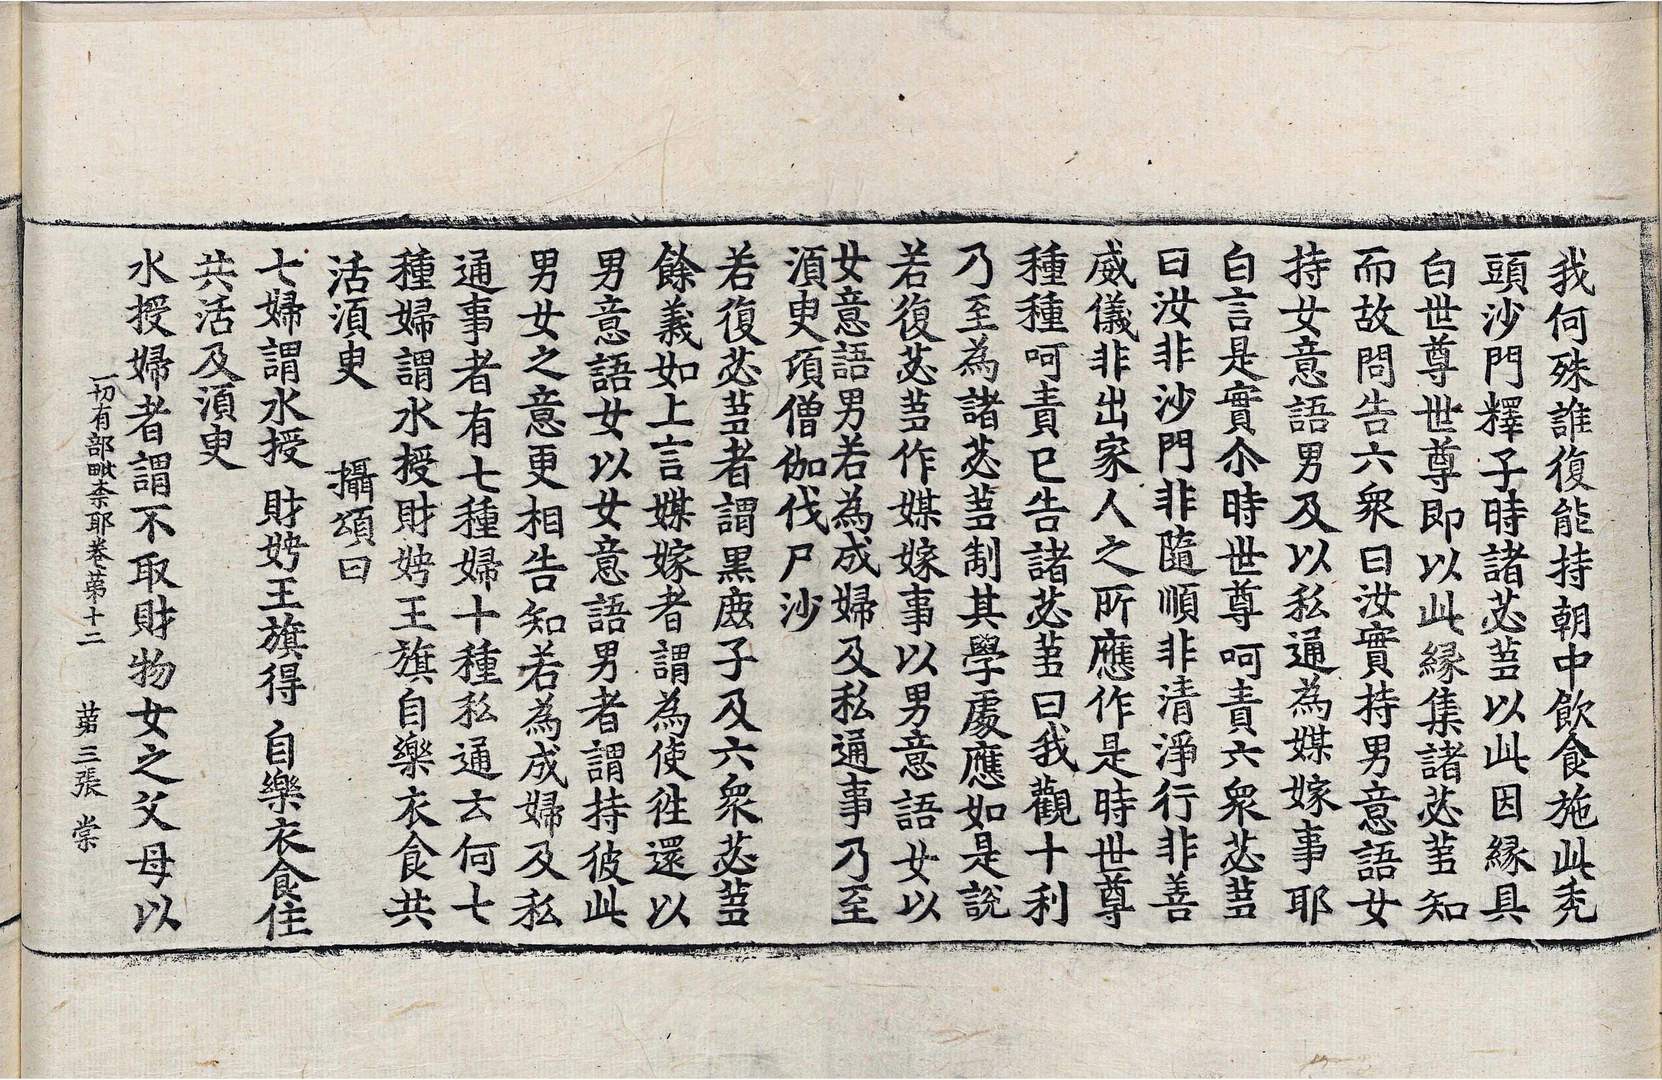 我何殊誰復能持朝中飲食施此禿
頭沙門釋子時諸苾芻以此因緣具
白世尊世尊即以此緣集諸苾芻知
而故問告六衆曰汝實持男意語女
持女意語男及以私通為媒嫁事耶
白言是實尒時世尊呵責六衆苾芻
曰汝非沙門非隨順非清淨行非善
威儀非出家人之所應作是時世尊
種種呵責已告諸苾芻曰我觀十利
乃至為諸苾芻制其學處應如是說
若復苾芻作媒嫁事以男意語女以
女意語男若為成婦及私通事乃至
湏臾頃僧伽伐尸沙
若復苾芻者謂黒鹿子及六衆苾芻
餘義如上言媒嫁者謂為使往還以
男意語女以女意語男者謂持彼此
男女之意更相告知若為成婦及私
通事者有七種婦十種私通云何七
種婦謂水授財娉王旗自樂衣食共
活湏臾 攝頌曰
七婦謂水授 財娉王旗得 自樂衣食住
共活及湏臾
水授婦者謂不取財物女之父母以
一切有部毗奈耶卷第十二 第三張 棠